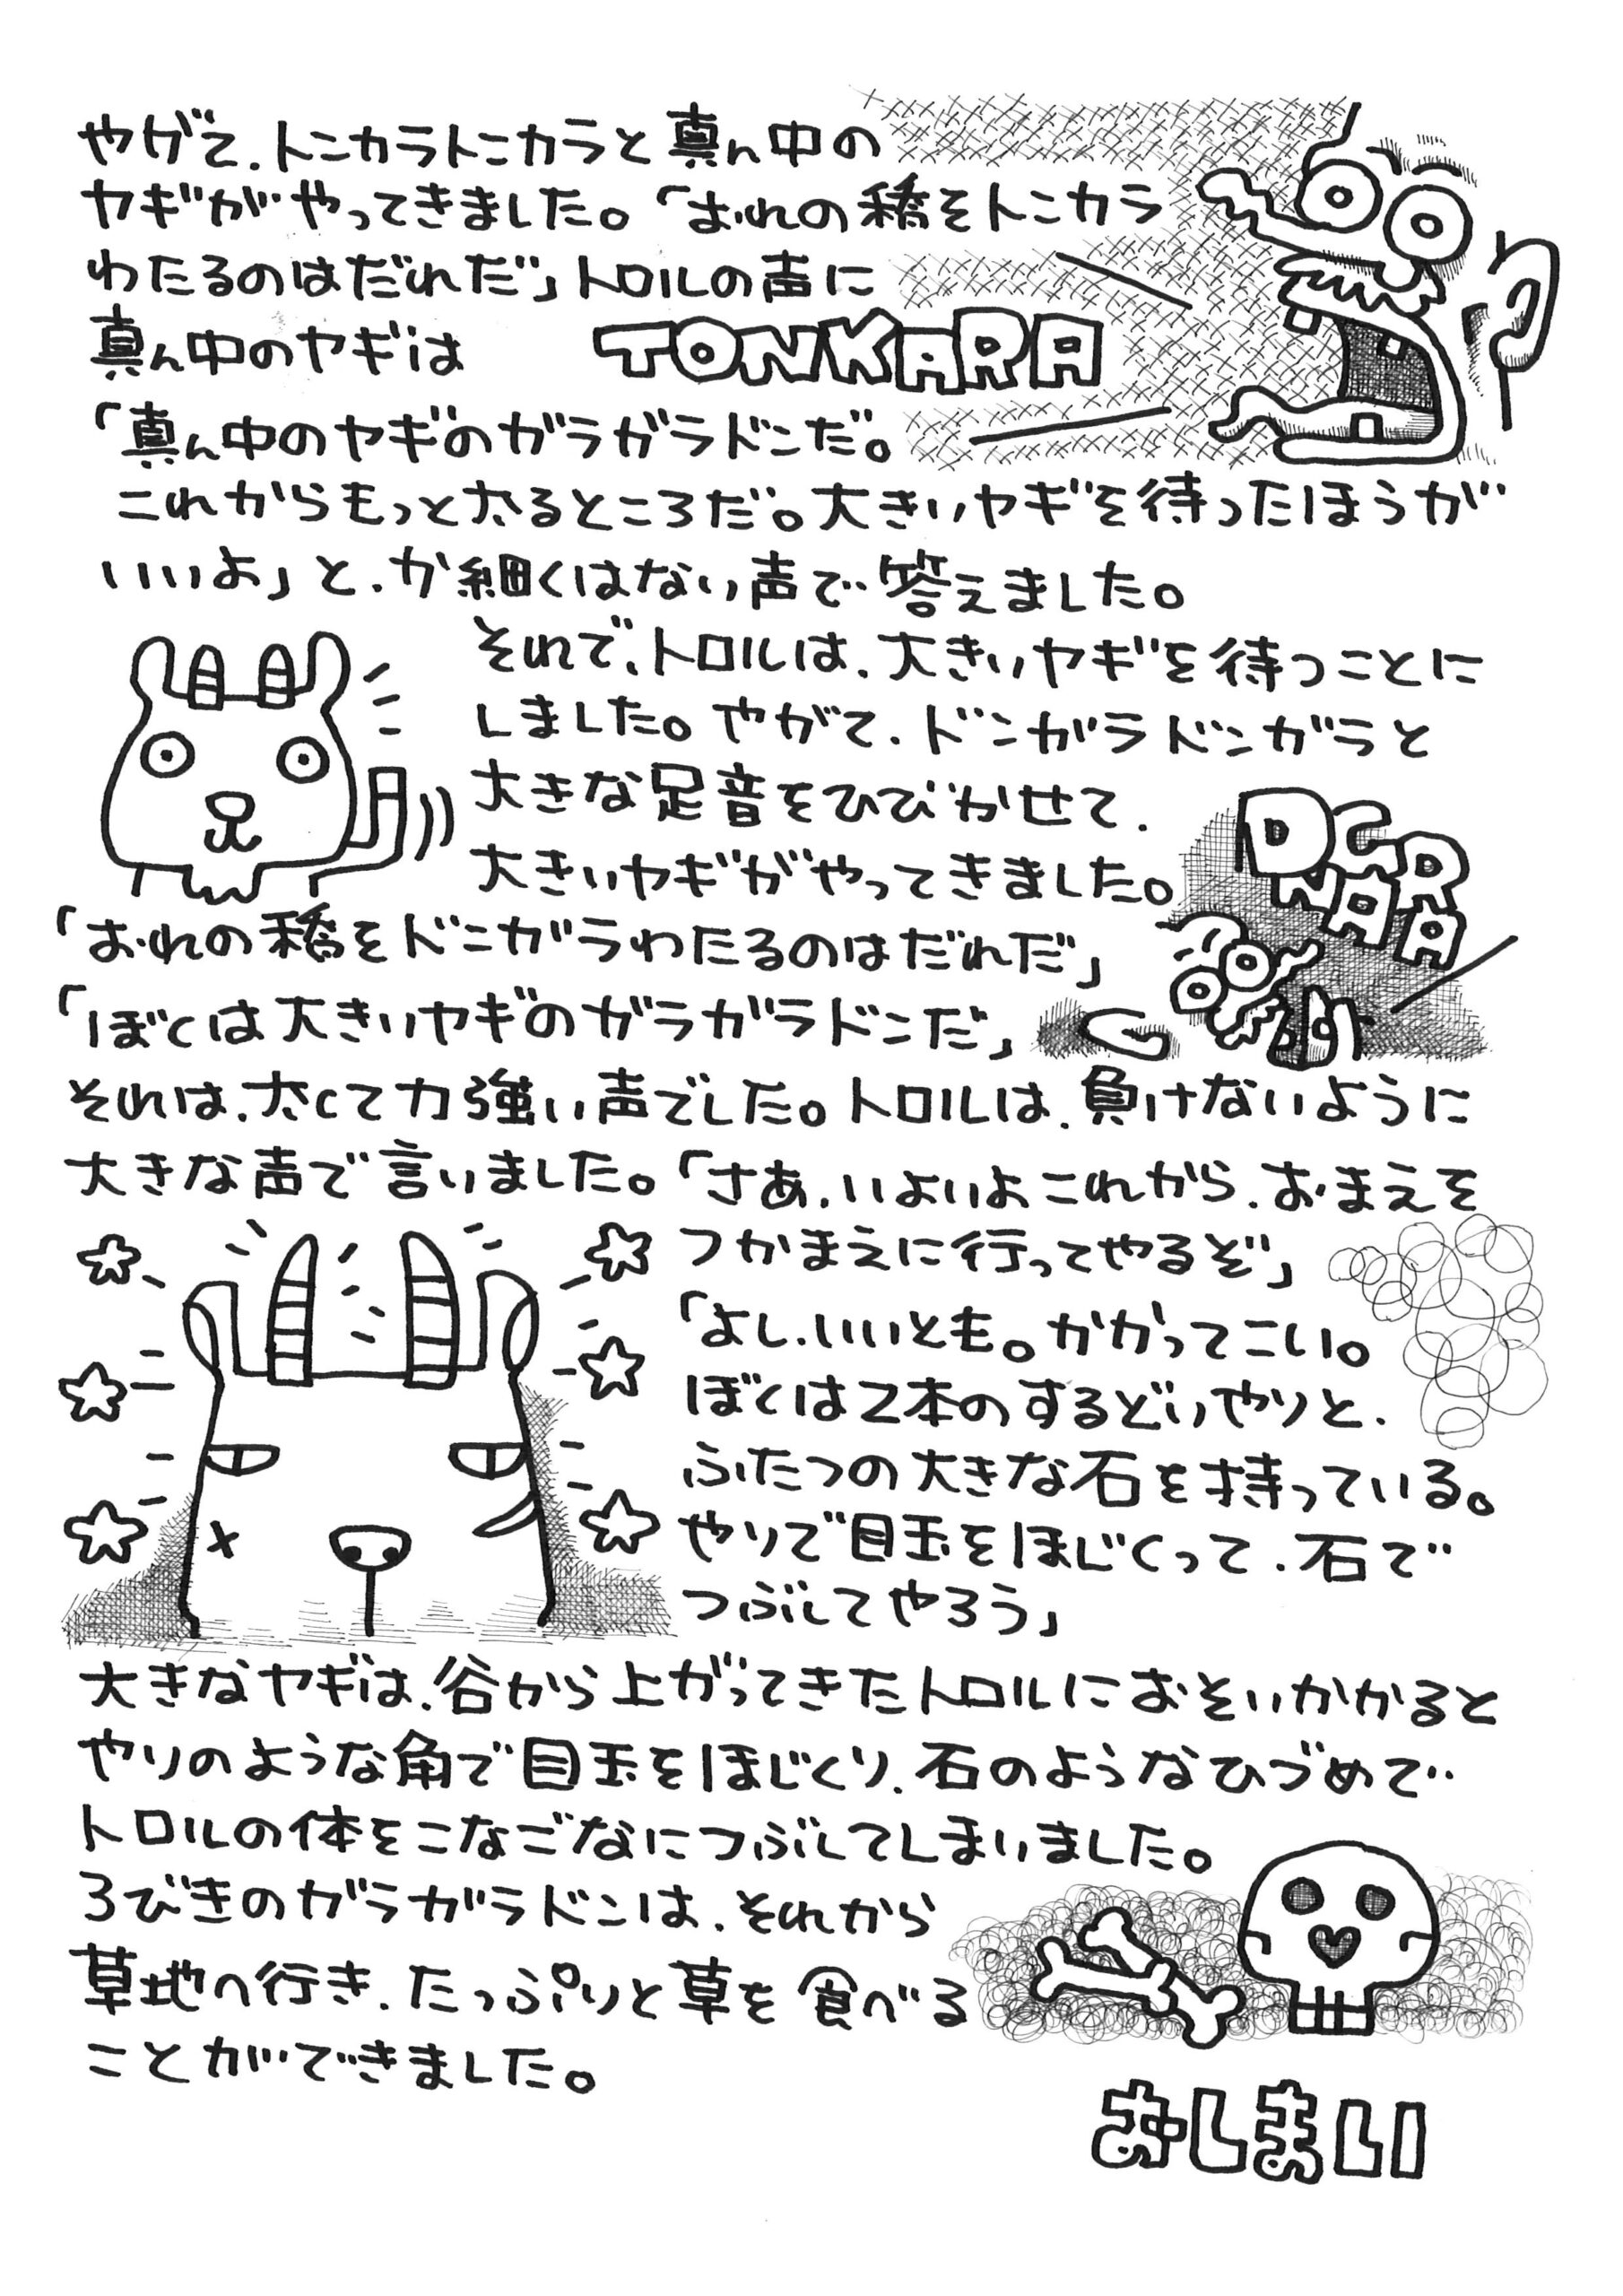 やがて、トンカラトンカラと真ん中の
ヤギがやってきました。「おれの橋をトンカラ
わたるのはだれだ」トロルの声に
真ん中のヤギは
TONKARA
「真ん中のヤギのガラガラドンだ。
これからもっと太るところだ。大きいヤギを待ったほうが
いいよ」と、か細くはない声で答えました。
それで、トロルは、大きいヤギを待つことに
しました。やがて、ドンガラドンガラと
大きな足音をひびかせて、
大きいヤギがやってきました。
DGR
NAA
「おれの橋をドンガラわたるのはだれだ」
「ぼくは大きいヤギのガラガラドンだ」
それは、太くて力強い声でした。トロルは、負けないように
大きな声で言いました。「さあ、いよいよこれから、おまえを
つかまえに行ってやるぞ」
「よし、いいとも。かかってこい。
ぼくは2本のするどいやりと、
ふたつの大きな石を持っている。
やりで目玉をほじくって、石で
つぶしてやろう」
大きなヤギは、谷から上がってきたトロルにおそいかかると
やりのような角で目玉をほじくり、石のようなひづめで
トロルの体をこなごなにつぶしてしまいました。
3びきのガラガラドンは、それから
草地へ行き、たっぷりと草を食べる
ことができました。
おしまい